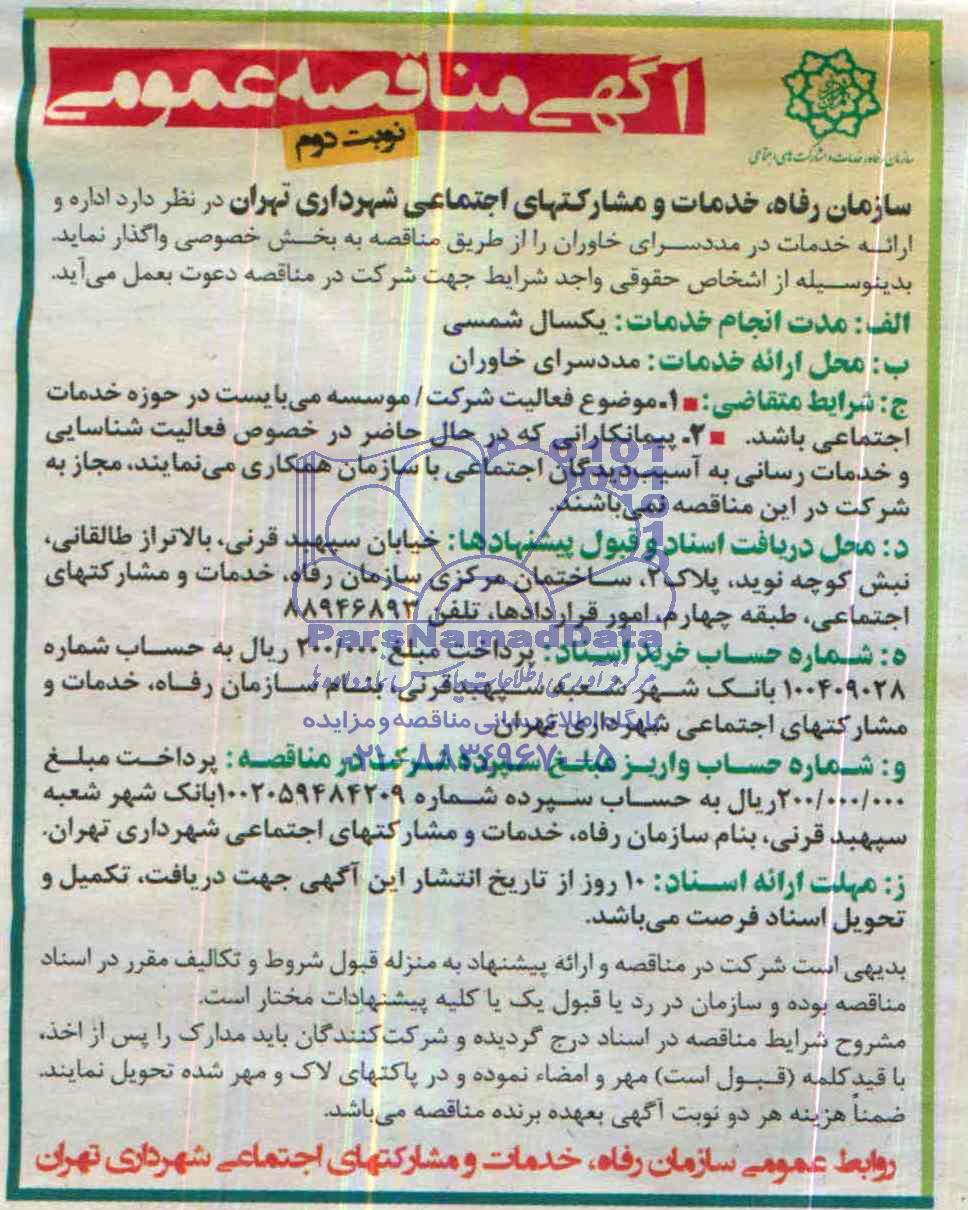 آگهی مناقصه عمومی
نوبت دوم
سازمان رفاه، خدمات و مشارکت های اجتماعی
سازمان رفاه، خدمات و مشارکتهای اجتماعی شهرداری تهران در نظر دارد اداره و
ارائه خدمات در مددسرای خاوران را از طریق مناقصه به بخش خصوصی واگذار نماید.
بدینوسیله از اشخاص حقوقی واجد شرایط جهت شرکت در مناقصه دعوت بعمل می‌آید.
الف: مدت انجام خدمات: یکسال شمسی
ب: محل ارائه خدمات: مددسرای خاوران
ج: شرایط متقاضی: ■ ۱ـ موضوع فعالیت شرکت/ موسسه می‌بایست در حوزه خدمات
اجتماعی باشد. ■ ۲ـ پیمانکارانی که در حال حاضر در خصوص فعالیت شناسایی
و خدمات رسانی به آسیب‌دیدگان اجتماعی با سازمان همکاری می‌نمایند، مجاز به
شرکت در این مناقصه نمی‌باشند.
د: محل دریافت اسناد و قبول پیشنهادها: خیابان سپهبد قرنی، بالاتر از طالقانی،
نبش کوچه نوید، پلاک ۲، ساختمان مرکزی سازمان رفاه، خدمات و مشارکتهای
اجتماعی، طبقه چهارم، امور قراردادها، تلفن ۸۸۹۴۶۸۹۳
ه: شماره حساب خرید اسناد: پرداخت مبلغ ۲۰۰/۰۰۰ ریال به حساب شماره
۱۰۰۴۰۹۰۲۸ بانک شهر شعبه سپهبد قرنی، بنام سازمان رفاه، خدمات و
مشارکتهای اجتماعی شهرداری تهران
و: شماره حساب واریز مبلغ سپرده شرکت در مناقصه: پرداخت مبلغ
۲۰۰/۰۰۰/۰۰۰ریال به حساب سپرده شماره ۱۰۰۲۰۵۹۴۸۴۲۰۹بانک شهر شعبه
سپهبد قرنی، بنام سازمان رفاه، خدمات و مشارکتهای اجتماعی شهرداری تهران.
ز: مهلت ارائه اسناد: ۱۰ روز از تاریخ انتشار این آگهی جهت دریافت، تکمیل و
تحویل اسناد فرصت می‌باشد.
بدیهی است شرکت در مناقصه و ارائه پیشنهاد به منزله قبول شروط و تکالیف مقرر در اسناد
مناقصه بوده و سازمان در رد یا قبول یک یا کلیه پیشنهادات مختار است.
مشروح شرایط مناقصه در اسناد درج گردیده و شرکت‌کنندگان باید مدارک را پس از اخذ،
با قید کلمه (قبول است) مهر و امضاء نموده و در پاکتهای لاک و مهر شده تحویل نمایند.
ضمناً هزینه هر دو نوبت آگهی بعهده برنده مناقصه می‌باشد.
روابط عمومی سازمان رفاه، خدمات و مشارکتهای اجتماعی شهرداری تهران
ParsNamadData
پایگاه اطلاع رسانی مناقصه و مزایده
۰۲۱-۸۸۳۴۹۶۷۰-۵